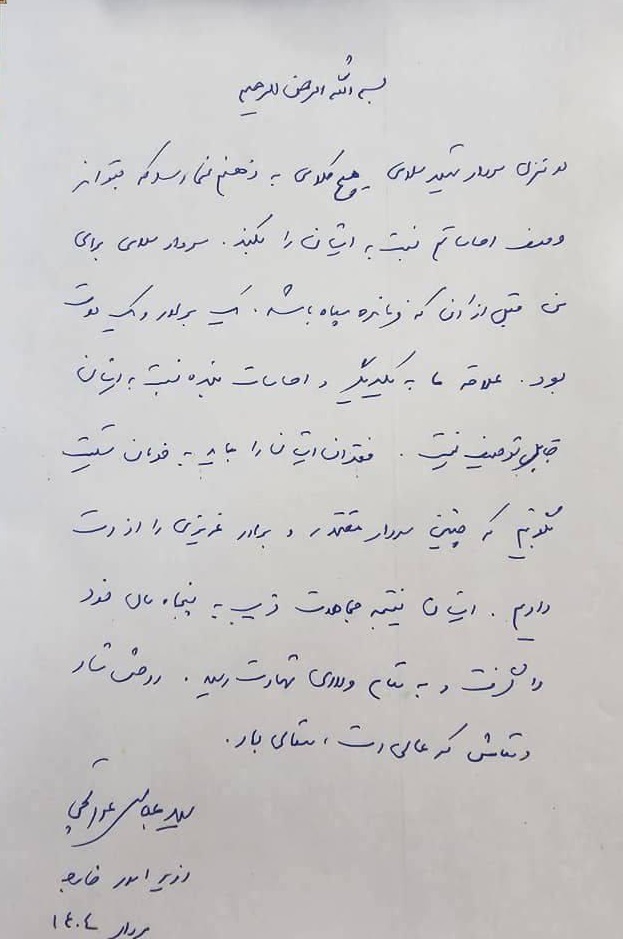 بسم الله الرحمن الرحیم
در منزل سردار شهید سلامی هیچ کلامی به ذهنم نمی‌رسد که بتواند
وصف احساساتم نسبت به ایشان را بکند. سردار سلامی برای
من قبل از آن که فرمانده سپاه باشد، یک برادر و یک دوست
بود. علاقه ما به یکدیگر و احساسات بنده نسبت به ایشان
قابل توصیف نیست. فقدان ایشان را باید به خودمان تسلیت
بگوئیم که چنین سردار مقتدر و برادر عزیزی را از دست
دادیم. ایشان نتیجه مجاهدت قریب به پنجاه سال خود
را گرفت و به مقام والای شهادت رسید. روحش شاد
و مقامش که عالی است، متعالی باد.
سید عباس عراقچی
وزیر امور خارجه
مرداد ۱۴۰۴